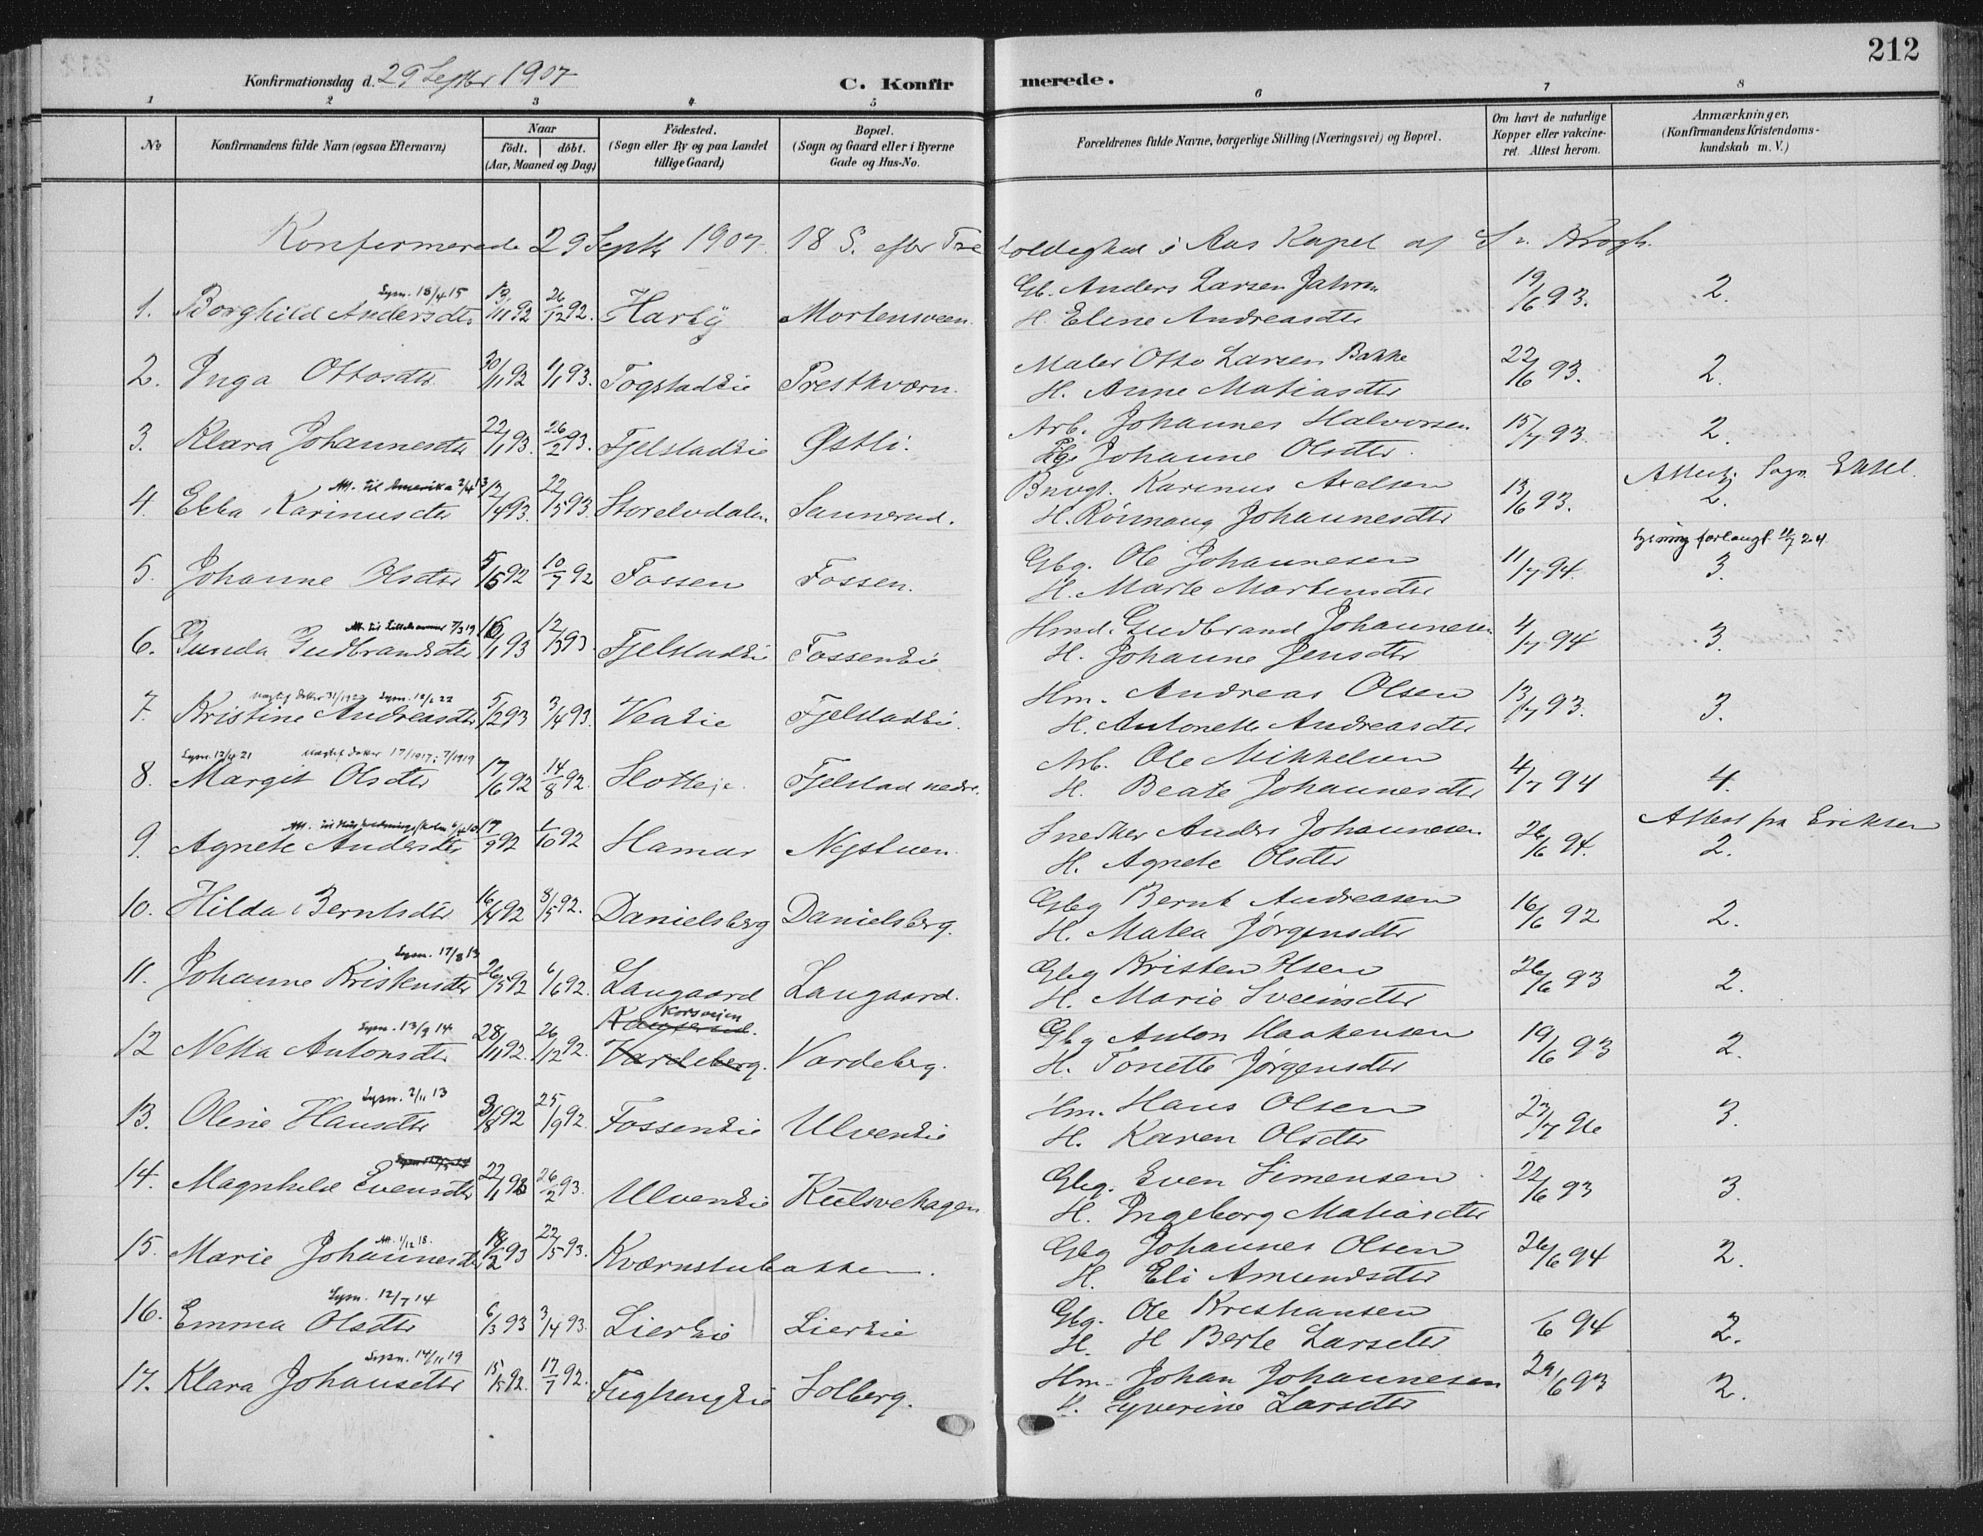 212
Konfirmationsdag d. 29 Septbr 1907
C. Konfirmerede.
1 2 3 4 5 6 7 8
No
Konfirmandens fulde Navn (ogsaa Efternavn)
Naar
födt. döbt.
(Aar, Maaned og Dag)
Födested.
(Sogn eller By og paa Landet
tillige Gaard)
Bopæl.
(Sogn og Gaard eller i Byerne
Gade og Hus-No.
Forældrenes fulde Navne, borgerlige Stilling (Næringsvei) og Bopæl.
Om havt de naturlige
Kopper eller vakcine-
ret. Attest herom.
Anmærkninger.
(Konfirmandens Kristendoms-
kundskab m. V.)
Konfirmerede 29 Septb 1907. 18 S. efter Trefoldighed i Aas Kapel af S. v. Krogh.
Lysn. 18/4 15
1. Borghild Andersdtr 13/11 92 26/12 92. Harby Mortensveen. Gb. Anders Larsen Jahren 19/6 93. 2.
H. Eline Andreasdtr
2. Inga Ottosdtr 30/11 92 6/1 93. Fogstadeie Prestkværn. Maler Otto Larsen Bakke 22/6 93. 2.
H. Anne Matiasdtr
3. Klara Johannesdtr 22/1 93. 26/2 93. Fjelstadeie Østli. Arb. Johannes Halvorsen 15/7 93. 2.
Johanne Olsdtr.
Att. til Amerika 2/4 13
4. Ebba Karinusdtr 12/4 93. 22/5 93. Storelvdalen Sannerud. Bnvgt. Karinus Axelsen 13/6 93. 2.
H. Rönnaug Johannesdtr
5. Johanne Olsdtr 5/5 92 10/7 92 Fossen Fossen. Gbg. Ole Johannesen 11/7 94. lysning forlangt 11/7 24. 3.
H. Marte Martensdtr
Att. til Lillehammer 7/3 19
6. Gunda Gudbrandsdtr 16/1 93 12/3 93 Fjelstadeie Fosseneie Hmd. Gudbrand Johannesen 4/7 94 3.
H. Johanne Jensdtr
Lysn. 12/1 22
7. Kristine Andreasdtr 5/2 93 3/4 93. Veaeie Fjelstadei. Hm. Andreas Olsen 13/7 93. 3.
H. Antonette Andreasdtr
Lysn. 13/4 21
8. Margit Olsdtr 17/6 92 14/8 92. Slotteje. Fjelstad nedre. Arb. Ole Mikkelsen 4/7 94 4.
H. Beate Johannesdtr
9. Agnete Andersdtr 17/9 92 1/10 92 Hamar Nystuen. Snedker Anders Johannesen 26/6 94. Attest fra Eriksen 2.
H. Agnete Olsdtr
10. Hilda Berntsdtr 16/4 92 8/5 92. Danielsberg Danielsberg. Gbg Bernt Andreasen 16/6 92 2.
H. Matea Jørgensdtr
Lysn. 17/8 13
11. Johanne Kristensdtr 26/5 92 6/6 92. Langaard Langaard. Gbg Kristen Olsen 26/6 93 2.
H. Marie Sveinsdtr
Lysn. 13/9 14
12 Netta Antonsdtr 28/11 92. 26/12 92. Korsveien Vardeberg. Vardeberg. Gbg Anton Haakensen 19/6 93 2.
H. Tonette Jørgensdtr
Lysn. 2/11 13
13. Oline Hansdtr 3/8 92 25/9 92. Fosseneie Ulveneie Hm. Hans Olsen 23/7 96 3.
H. Karen Olsdtr
14. Magnhild Evensdtr 22/1 93 26/2 93. Ulveneie Kulsvehagen Gbg. Even Simensen 22/6 93 3.
H. Ingeborg Matiasdtr
Att. 1/12 18.
15. Marie Johannesdtr 18/2 93 22/5 93. Kværnstubakken. Gbg Johannes Olsen 26/6 94 2.
H. Eli Amundsdtr
Lysn. 12/7 14
16. Emma Olsdtr 6/3 93 3/4 93. Liereie Liereie Gbg. Ole Kristiansen 6 94 2.
H. H Berte Larsdtr
Lysn. 14/11 19
17. Klara Johansdtr 15/5 92. 17/7 92. Solberg. Hm. Johan Johannesen 29/6 93 2.
H. Syverine Larsdtr